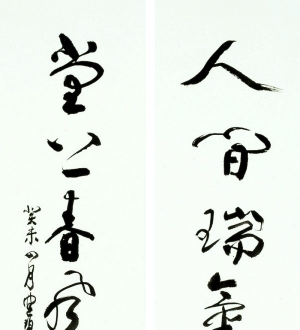 人间瑞气
堂上春风
癸未四月